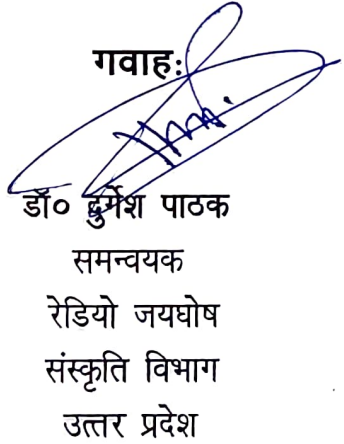 गवाहः
डॉ० दुर्गेश पाठक
समन्वयक
रेडियो जयघोष
संस्कृति विभाग
उत्तर प्रदेश